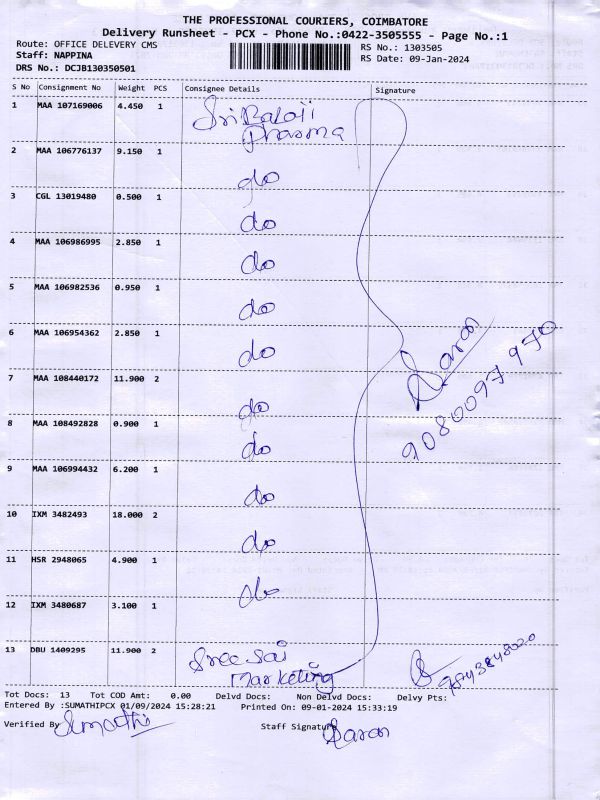 THE PROFESSIONAL COURIERS, COIMBATORE
Delivery Runsheet - PCX - Phone No.:0422-3505555 - Page No.:1
Route: OFFICE DELEVERY CMS
RS No.: 1303505
Staff: NAPPINA
RS Date: 09-Jan-2024
DRS No.: DCJB130350501
S No Consignment No Weight PCS Consignee Details Signature
1 MAA 107169006 4.450 1 Sri Balaji
Pharma
2 MAA 106776137 9.150 1 do
3 CGL 13019480 0.500 1 do
4 MAA 106986995 2.850 1 do
5 MAA 106982536 0.950 1 do
6 MAA 106954362 2.850 1 do
7 MAA 108440172 11.900 2 do
8 MAA 108492828 0.900 1 do
9 MAA 106994432 6.200 1 do
10 IXM 3482493 18.000 2 do
11 HSR 2948065 4.900 1 do
12 IXM 3480687 3.100 1
13 DBU 1409295 11.900 2 Sree Sai
Marketing
Saran
Tot Docs: 13 Tot COD Amt: 0.00 Delvd Docs: Non Delvd Docs: Delvy Pts:
Entered By :SUMATHIPCX 01/09/2024 15:28:21 Printed On: 09-01-2024 15:33:19
Verified By Sumathi Staff Signature Saran